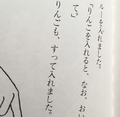 ルーを入れました。
「りんごを入れると、なお、おい
て」
りんごも、すって入れました。